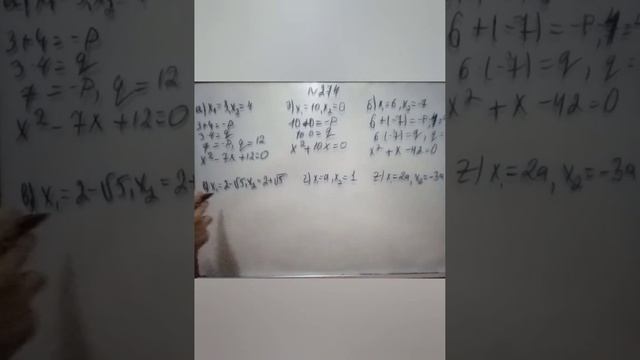 N 274
а) x₁ = 3, x₂ = 4
3+4=-p
3·4=q
7=-p, q=12
x²-7x+12=0
x₁=10, x₂=0
10+0=-p
10·0=q
x²+10x=0
б) x₁=6, x₂=-7
6+(-7)=-p
6·(-7)=q, q
x²+x-42=0
в) x₁=2-√5, x₂=2+√5
x₁=a, x₂=1
x₁=2a, x₂=-3a